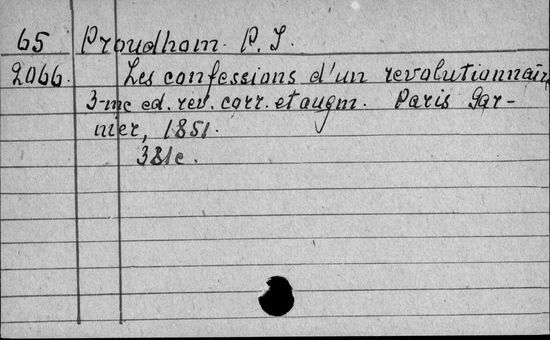 65 Proudhom P. J.
2066. Les confessions d'un revolutionnaire
3-me ed. rev. corr. et augm. Paris Gar-
nier, 1851.
381c.